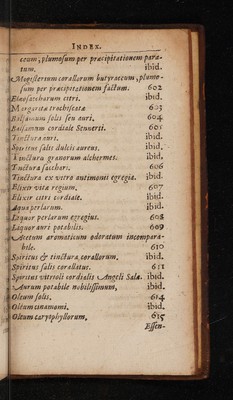 INDEX.
ceum, plumosum per præcipitationem para-
tum. ibid.
Magisterium corallorum butyraceum, plumo-
sum per præcipitationem factum. 602
Eleosaccharum citri. ibid.
Margaritæ trochiscatæ 603
Balsamum solis seu auri. 604
Balsamum cordiale Sennerti. 605
Tinctura auri. ibid.
Spiritus salis dulcis aureus. ibid.
Tinctura granorum alchermes. ibid.
Tinctura sacchari. 606
Tinctura ex vitro antimonii egregia. ibid.
Elixir vitæ regium. 607
Elixir citri cordiale. ibid.
Aqua perlarum. ibid.
Liquor perlarum egregius. 608
Liquor auri potabilis. 609
Acetum aromaticum odoratum incompara-
bile. 610
Spiritus & tinctura corallorum, ibid.
Spiritus salis corallatus. 611
Spiritus vitrioli cordialis Angeli Salæ. ibid.
Aurum potabile nobilissimum, ibid.
Oleum solis. 614
Oleum cinamomi, ibid.
Oleum caryophyllorum, 615
Essen-